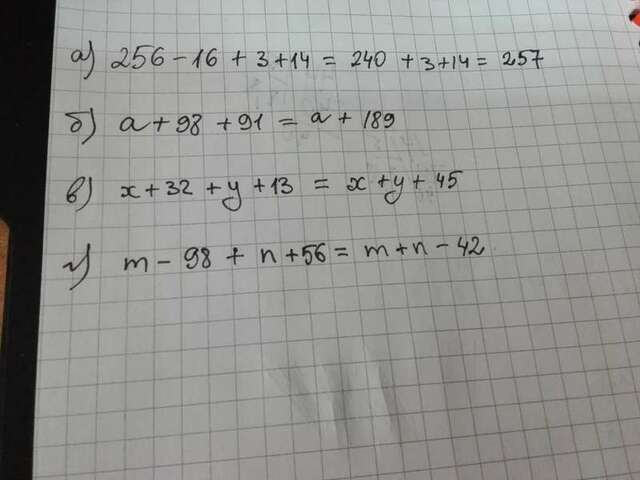 а) 256 - 16 + 3 + 14 = 240 + 3 + 14 = 257
б) a + 98 + 91 = a + 189
в) x + 32 + y + 13 = x + y + 45
г) m - 98 + n + 56 = m + n - 42